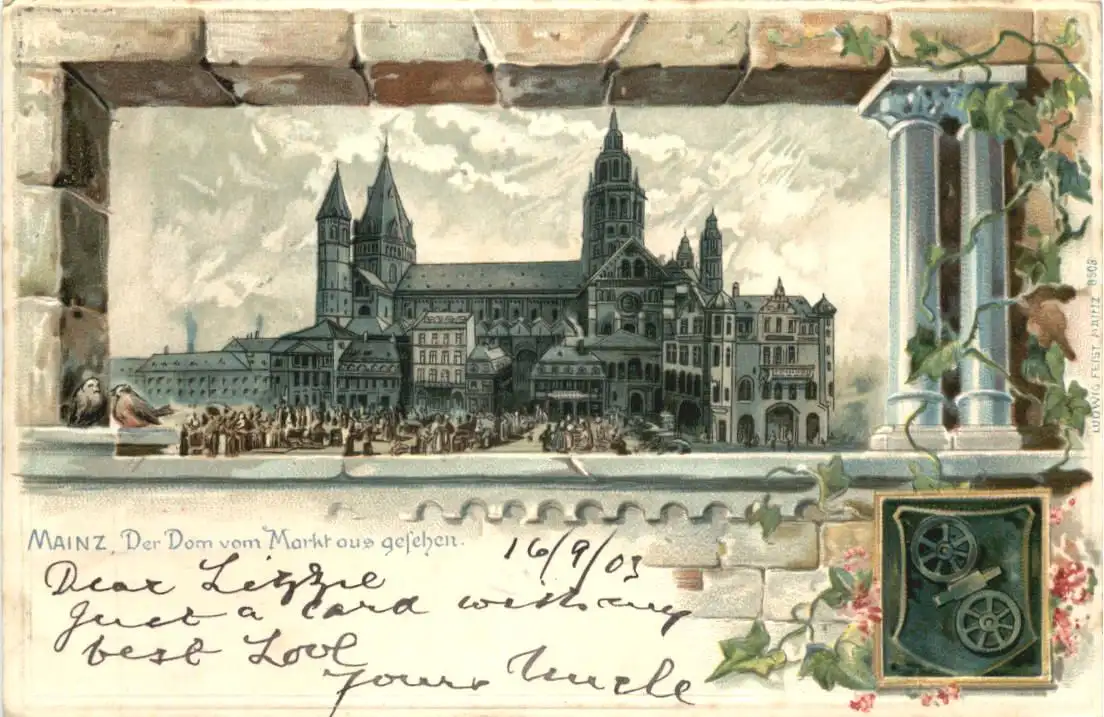 MAINZ, Der Dom vom Markt aus gesehen.
16/9/03
Dear Lizzie
Just a card with my
best Love
Yours Uncle
LUDWIG FEIST MAINZ 8503